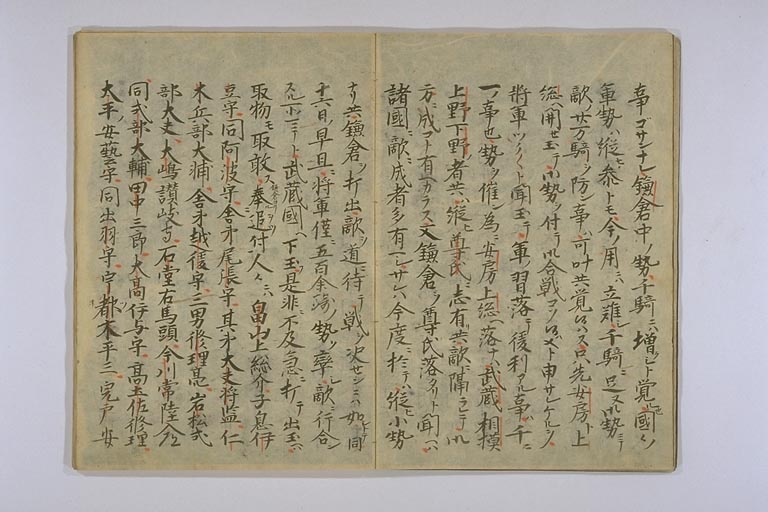 事ゴサンナレ鎌倉中ノ勢千騎ニハ増ジト覚ル國々ノ
軍勢ハ縦ヒ参トモ今ノ用ニハ立難シ千騎ニ足ヌ小勢ニテ
敵ノ廿万騎ヲ防ン事ハ可叶共覚候ハス只先安房上
総ヘ開セ玉テ御勢ヲ付テ御合戦コソ候ヘト申サレケルヲ
将軍ツクツクト聞玉テ軍ノ習落テ後利アル事千ニ
一ノ事也勢ヲ催ン為ニ安房上総ヘ落ナハ武蔵相模
上野下野ノ者共ハ縦ヒ尊氏ニ志有共敵ニ隔ラレテ御
方ニ成コト有ヘカラス又鎌倉ヲ尊氏落タリト聞ハ
諸國ニ敵ニ成者多有ヘシサレハ今度ニ於テハ縦ヒ小勢
ナリ共鎌倉ヲ打出敵ヲ道ニ待テ戦ヲ決センニハ如シトテ同
十六日ノ早旦ニ将軍僅ニ五百余騎ノ勢ヲ率シ敵ノ行合ン
スル所ニテト武蔵國ヘ下玉是非ニ不及急ニ打テ出玉ヘハ
取物モ取敢ス奉追付人々ニハ畠山上総介子息伊
豆守同阿波守舎弟尾張守其弟大夫将監仁
木兵部大輔舎弟越後守三男修理亮岩松式
部大夫大嶋讃岐守石堂右馬頭今川常陸介
同式部大輔田中三郎大高伊与守高土佐修理
太平安藝守同出羽守宇都木平三宍戸安